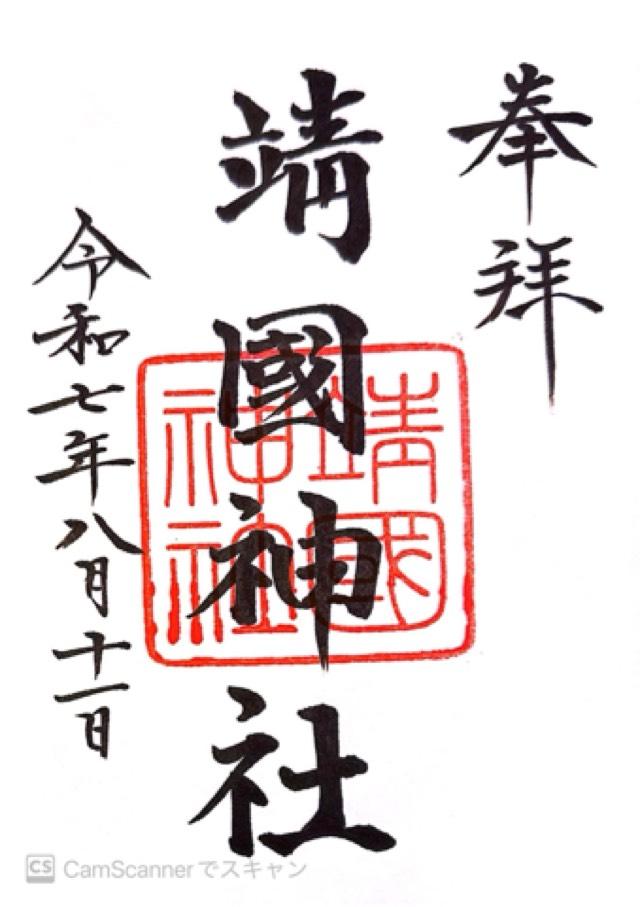 奉拝
靖國神社
靖國神社
令和七年八月十一日
CS CamScannerでスキャン